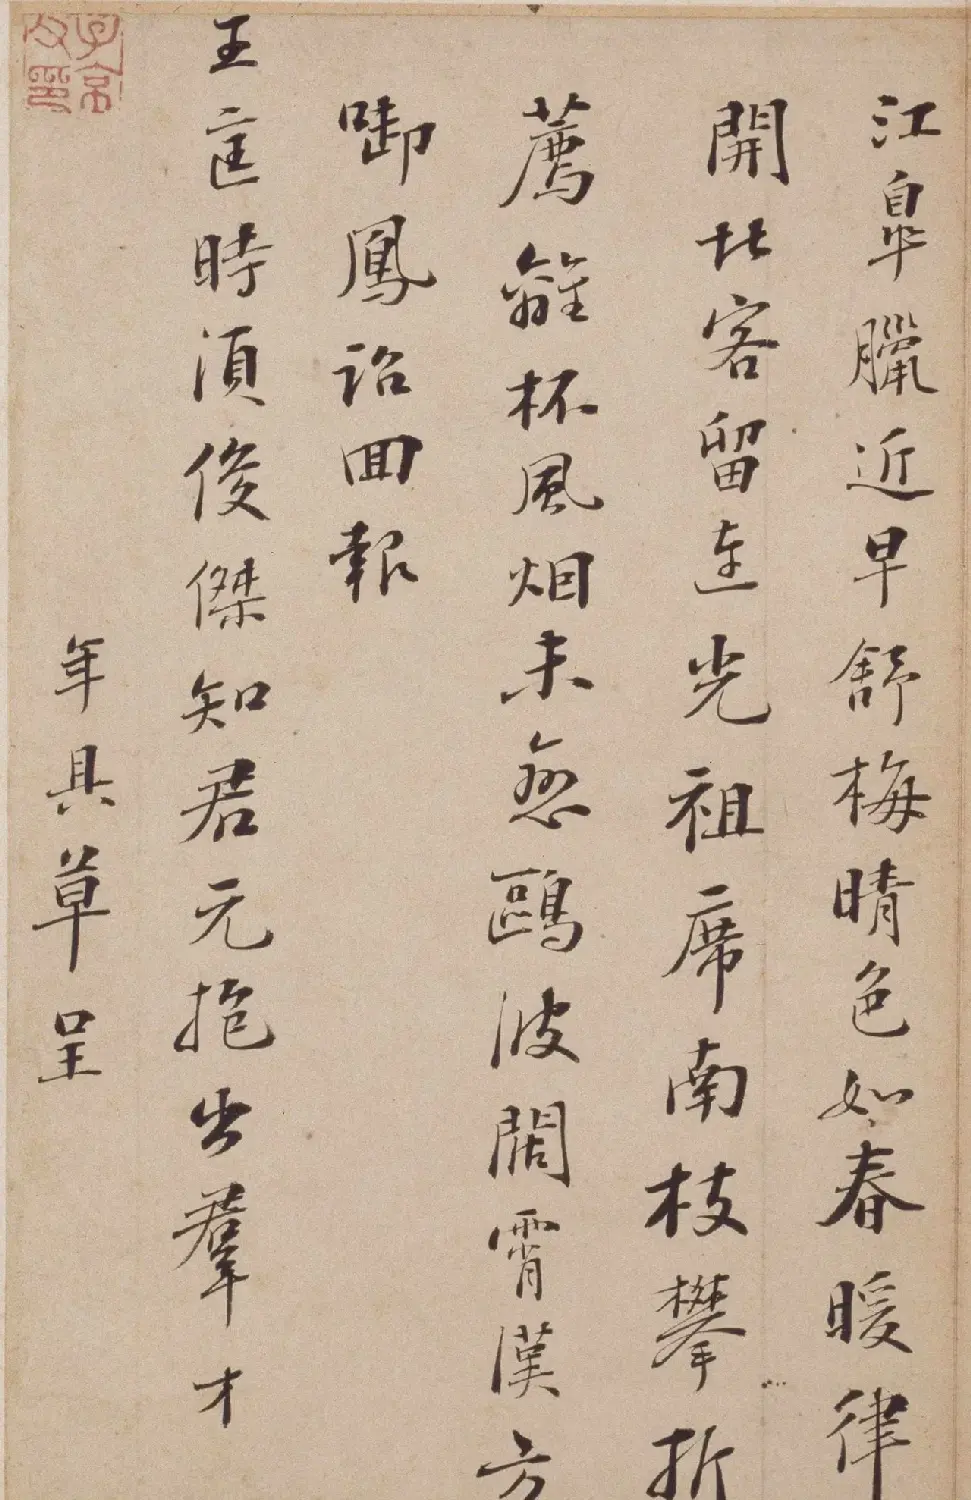 江皐臘近早舒梅晴色如春暖律
開北客留連光祖席南枝攀折
薦離杯風烟未鷗波闊霄漢方
啣鳳詔囬報
王匡時湏俊傑知君元抱出羣才
年具草呈
子京父印